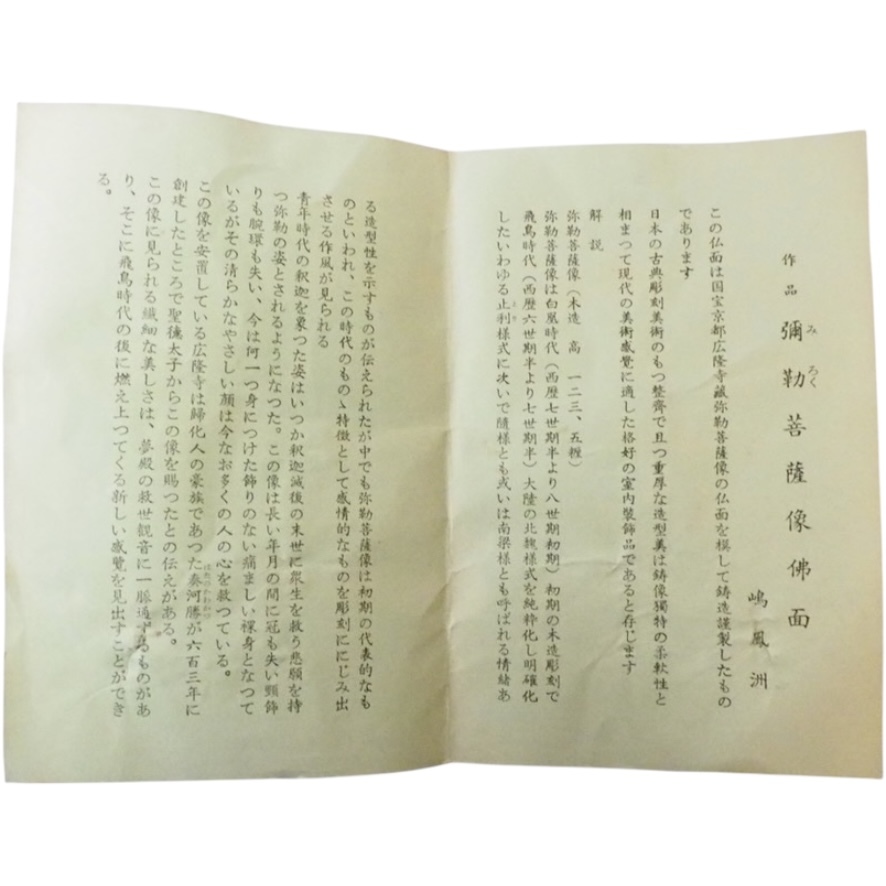 作品 彌勒菩薩像佛面
みろく
嶋鳳洲
この仏面は国宝京都広隆寺蔵弥勒菩薩像の仏面を模して鋳造謹製したもの
であります
日本の古典彫刻美術のもつ整斉で且つ重厚な造型美は鋳像獨特の柔軟性と
相まつて現代の美術感覚に適した格好の室内装飾品であると存じます
解説
弥勒菩薩像（木造 高 一二三、五糎）
弥勒菩薩像は白凰時代（西歴七世期半より八世期初期）初期の木造彫刻で
飛鳥時代（西歴六世期半より七世期半）大陸の北魏様式を純粋化し明確化
したいわゆる止利様式に次いで隨様とも或いは南梁様とも呼ばれる情緒あ
とり
る造型性を示すものが伝えられたが中でも弥勒菩薩像は初期の代表的なも
のといわれ、この時代のものゝ特徴として感情的なものを彫刻ににじみ出
させる作風が見られる
青年時代の釈迦を象つた姿はいつか釈迦滅後の末世に衆生を救う悲願を持
つ弥勒の姿とされるようになつた。この像は長い年月の間に冠も失い頸飾
りも腕環も失い、今は何一つ身につけた飾りのない痛ましい裸身となつて
いるがその清らかなやさしい顔は今なお多くの人の心を救つている。
この像を安置している広隆寺は帰化人の豪族であつた秦河勝が六百三年に
はたのかわかつ
創建したところで聖徳太子からこの像を賜つたとの伝えがある。
この像に見られる繊細な美しさは、夢殿の救世観音に一脈通ずるものがあ
り、そこに飛鳥時代の後に燃え上つてくる新しい感覚を見出すことができ
る。